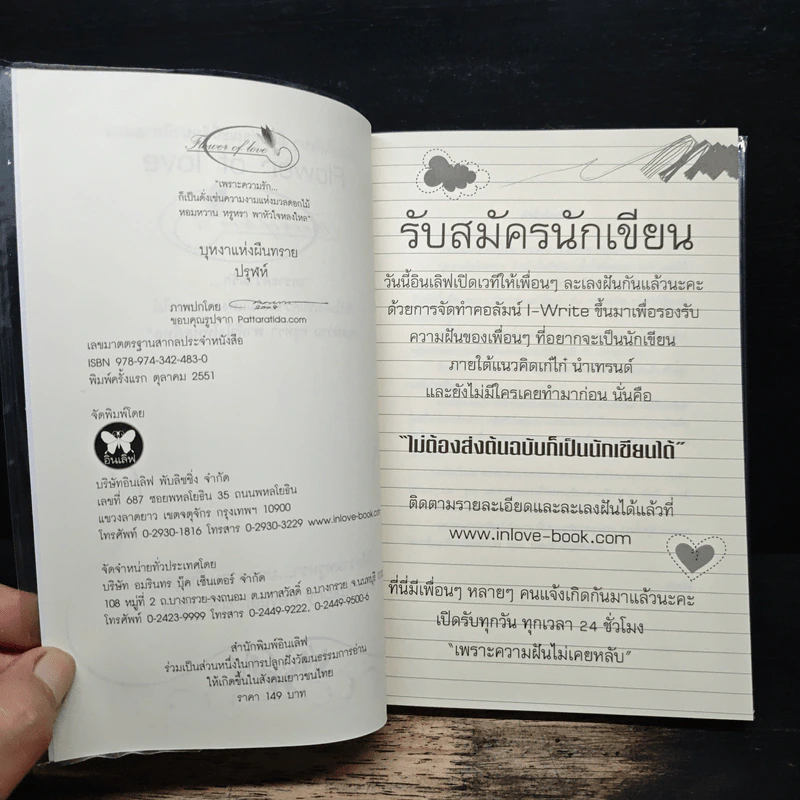 Flower of love
"เพราะความรัก...
ก็เป็นดั่งเช่นความงามแห่งมวลดอกไม้
หอมหวาน หรูหรา พาหัวใจหลงใหล"
บุหงาแห่งผืนทราย
ปรุฬห์
ภาพปกโดย
ขอบคุณรูปจาก Pattaratida.com
เลขมาตรฐานสากลประจำหนังสือ
ISBN 978-974-342-483-0
พิมพ์ครั้งแรก ตุลาคม 2551
จัดพิมพ์โดย
อินเลิฟ
บริษัทอินเลิฟ พับลิชชิ่ง จำกัด
เลขที่ 687 ซอยพหลโยธิน 35 ถนนพหลโยธิน
แขวงลาดยาว เขตจตุจักร กรุงเทพฯ 10900
โทรศัพท์ 0-2930-1816 โทรสาร 0-2930-3229 www.inlove-book.com
จัดจำหน่ายทั่วประเทศโดย
บริษัท อมรินทร์ บุ๊ค เซ็นเตอร์ จำกัด
108 หมู่ที่ 2 ถ.บางกรวย-จงถนอม ต.มหาสวัสดิ์ อ.บางกรวย จ.นนทบุรี
โทรศัพท์ 0-2423-9999 โทรสาร 0-2449-9222, 0-2449-9500-6
สำนักพิมพ์อินเลิฟ
ร่วมเป็นส่วนหนึ่งในการปลูกฝังวัฒนธรรมการอ่าน
ให้เกิดขึ้นในสังคมเยาวชนไทย
ราคา 149 บาท
รับสมัครนักเขียน
วันนี้อินเลิฟเปิดเวทีให้เพื่อนๆ ละเลงฝันกันแล้วนะคะ
ด้วยการจัดทำคอลัมน์ I-Write ขึ้นมาเพื่อรองรับ
ความฝันของเพื่อนๆ ที่อยากจะเป็นนักเขียน
ภายใต้แนวคิดเก๋ไก๋ นำเทรนด์
และยังไม่มีใครเคยทำมาก่อน นั่นคือ
"ไม่ต้องส่งต้นฉบับก็เป็นนักเขียนได้"
ติดตามรายละเอียดและละเลงฝันได้แล้วที่
www.inlove-book.com
ที่นี่มีเพื่อนๆ หลายๆ คนแจ้งเกิดกันมาแล้วนะคะ
เปิดรับทุกวัน ทุกเวลา 24 ชั่วโมง
"เพราะความฝันไม่เคยหลับ"